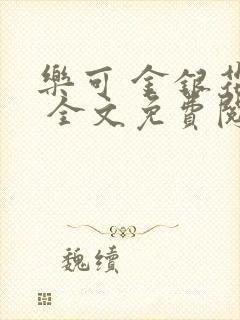 樂可 金銀花
全文免費閱
魏續